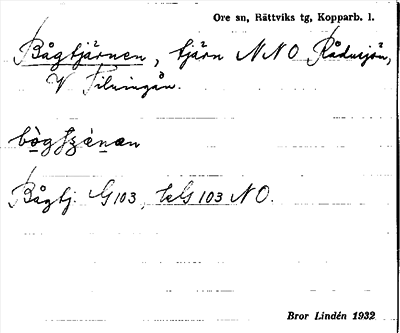 Ore sn, Rättviks tg, Kopparb. l.
Bågtjärnen, tjärn NNO Rådusjön,
V Filningån.
Bågtj. G103, 103 NO.
Bror Lindén 1932